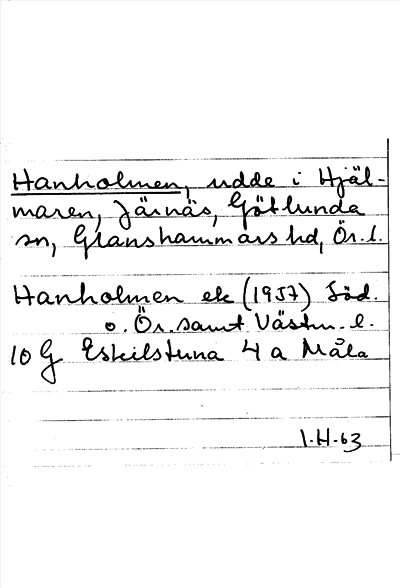 Hanholmen, udde i Hjäl-
maren, Järnäs, Götlunda
sn, Glanshammars hd, Ör. l.
Hanholmen ek (1957) Söd.
o. Ör. samt Västm. l.
10 G Eskilstuna 4 a Måla
1.H.63